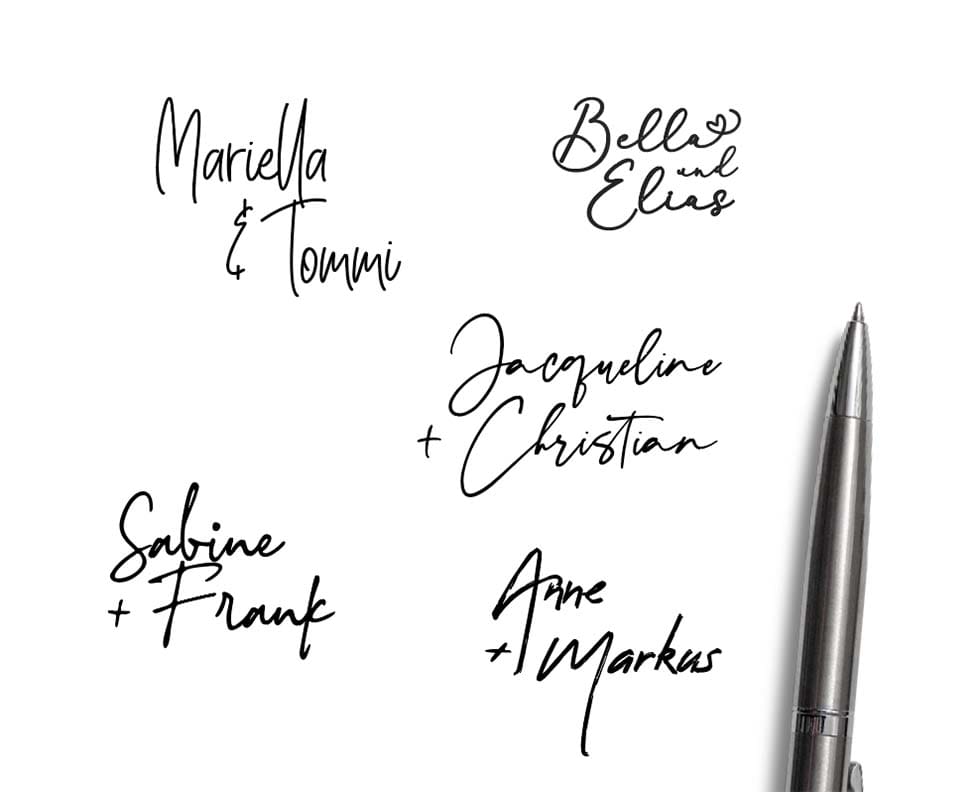 Mariella
& Tommi
Bella
und
Elias
Jacqueline
+ Christian
Sabine
+ Frank
Anne
+ Markus